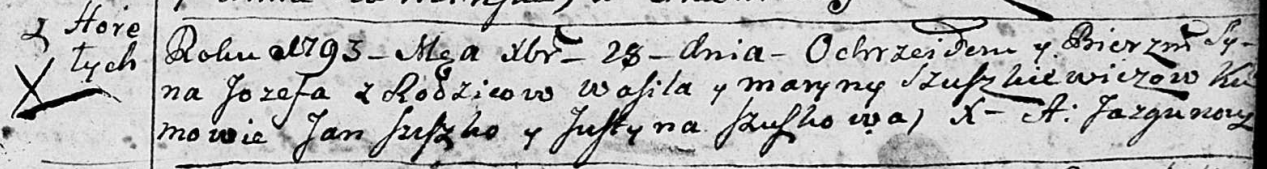 z Hore
łych
Roku 1793 – Mca Xbr – 28 – dnia – Ochrzciłem y Bierzm Sy-
na Jozefa z Rodzicow Wasila y Maryny Szuszkiewiczow Ku
mowie Jan Szuszko y Justyna Szuszkowa) X – A: Jazgunowy